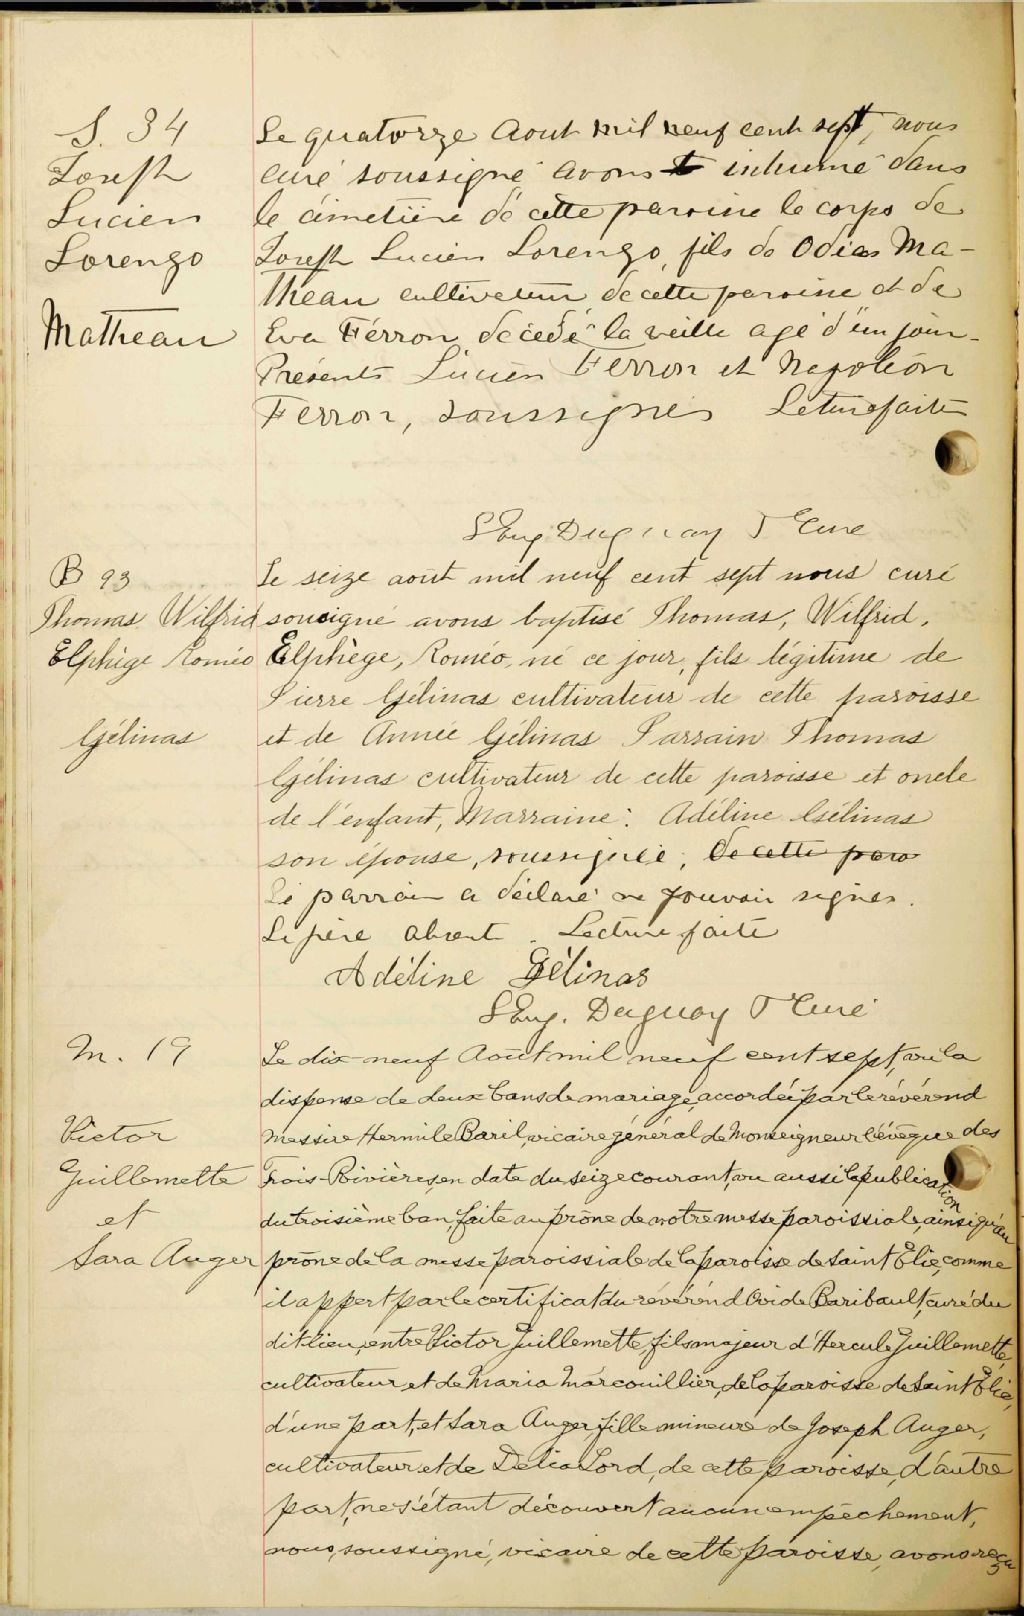 S. 34
Joseph
Lucien
Lorenzo
Matheau
Le quatorze Aout mil neuf cent sept, nous
curé soussigné avons inhumé dans
le cimetière de cette paroisse le corps de
Joseph Lucien Lorenzo, fils de Odias Ma-
theau cultivateur de cette paroisse et de
Eva Férron, décédé la veille agé d'un jour.
Présents Lucien Ferron et Napoléon
Ferron, soussignés Lecture faite
S Eug Duguay Ptre Curé
B 93
Thomas Wilfrid
Elphège Roméo
Gélinas
Le seize août mil neuf cent sept nous curé
sousigné avons baptisé Thomas, Wilfrid,
Elphège, Roméo, né ce jour, fils légitime de
Pierre Gélinas cultivateur de cette paroisse
et de Année Gélinas Parrain Thomas
Gélinas cultivateur de cette paroisse et oncle
de l'enfant, Marraine: Adéline Gélinas
son épouse, soussignée, de cette paro
Le parrain a déclaré ne pouvoir signer.
Le père absent. Lecture faite
Adéline Gélinas
S Eug. Duguay Ptre Curé
M. 19
Victor
Guillemette
et
Sara Auger
Le dix-neuf Août mil neuf cent sept, vu la
dispense de deux bans de mariage, accordée par le révérend
messire Hermile Baril, vicaire général de Monseigneur l'évêque des
Trois-Rivières, en date du seize courant, vu aussi la publication
du troisième ban, faite au prône de notre messe paroissiale, ainsi qu'au
prône de la messe paroissiale de la paroisse de Saint Elie, comme
il appert par le certificat du révérend Ovide Baribault, curé du
dit lieu, entre Victor Guillemette, fils majeur d'Hercule Guillemette,
cultivateur, et de Maria Marcouillier, de la paroisse de Saint Elie,
d'une part, et Sara Auger, fille mineure de Joseph Auger,
cultivateur, et de Délia Lord, de cette paroisse, d'autre
part, ne s'étant découvert aucun empêchement,
nous, soussigné, vicaire de cette paroisse, avons reçu